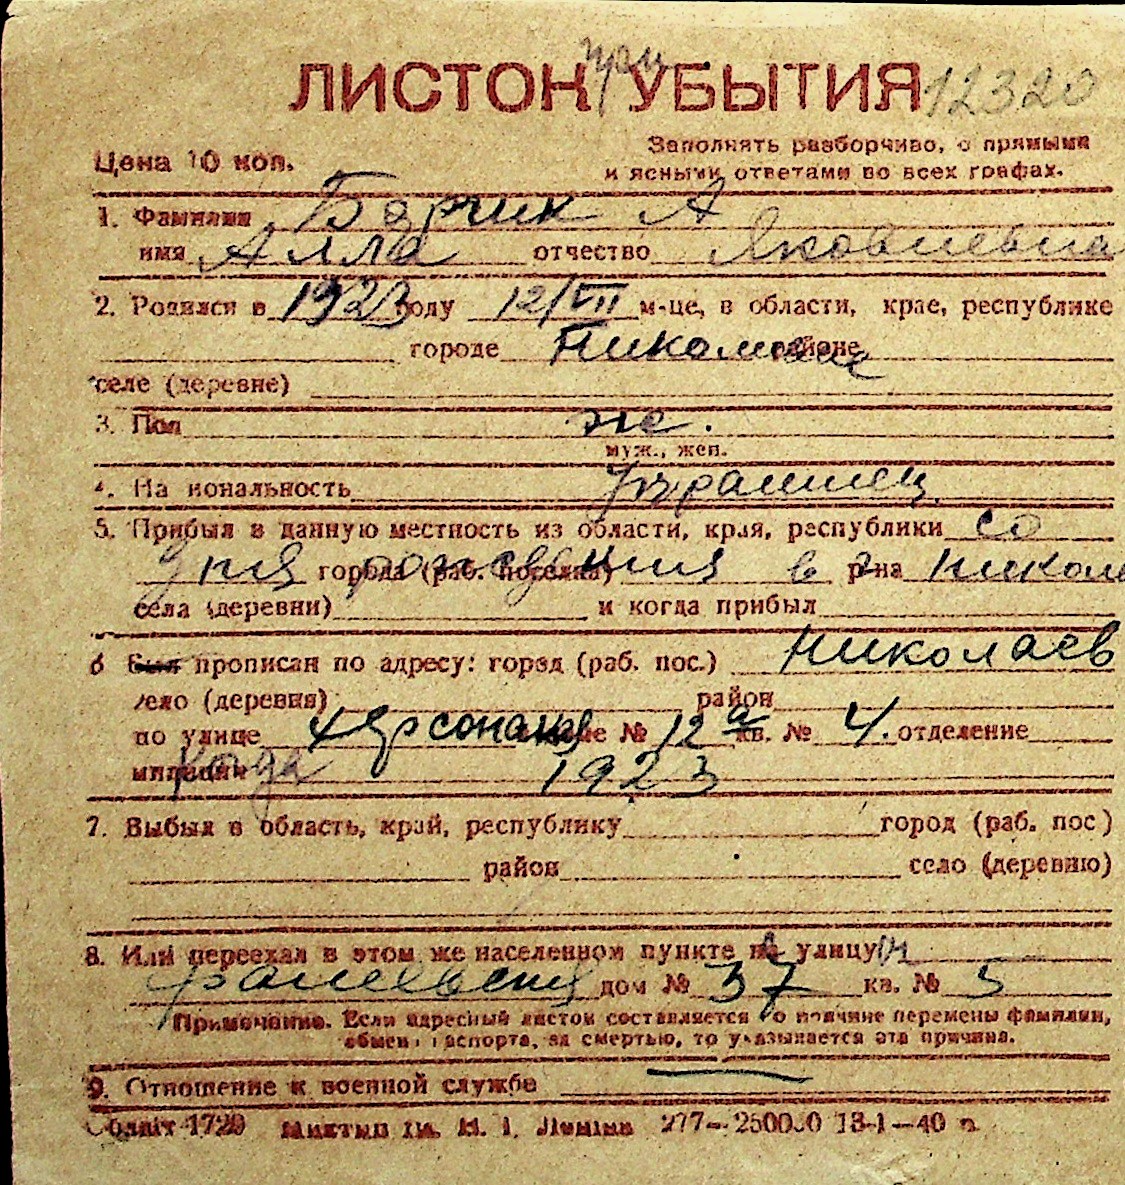 ЛИСТОК при УБЫТИЯ 12320
Цена 10 коп. Заполнять разборчиво, с прямыми
и ясными ответами во всех графах.
1. Фамилия А
имя Алла отчество Яковлевна
2. Родился в 1923 году 12/VII м-це, в области, крае, республике
городе районе
селе (деревне)
3. Пол же.
муж., жен.
4. На иональность Украинец
5. Прибыл в данную местность из области, края, республики со
дня рождения города (раб. поселка) в р-на Никола
села (деревни) и когда прибыл
6 Был прописан по адресу: город (раб. пос.) Николаев
село (деревня) район
по улице Херсонская № 12 а кв. № 4. отделение
милиции когда 1923
7. Выбыл в область, край, республику город (раб. пос)
район село (деревню)
8. Или переехал в этом же населенном пункте на улицу
дом № 37 кв. № 5
Примечание. Если адресный листок составляется по причине перемены фамилии,
обмен паспорта, за смертью, то указывается эта причина.
9. Отношение к военной службе
1720 им. Ленина 277— 13-1—40 г.